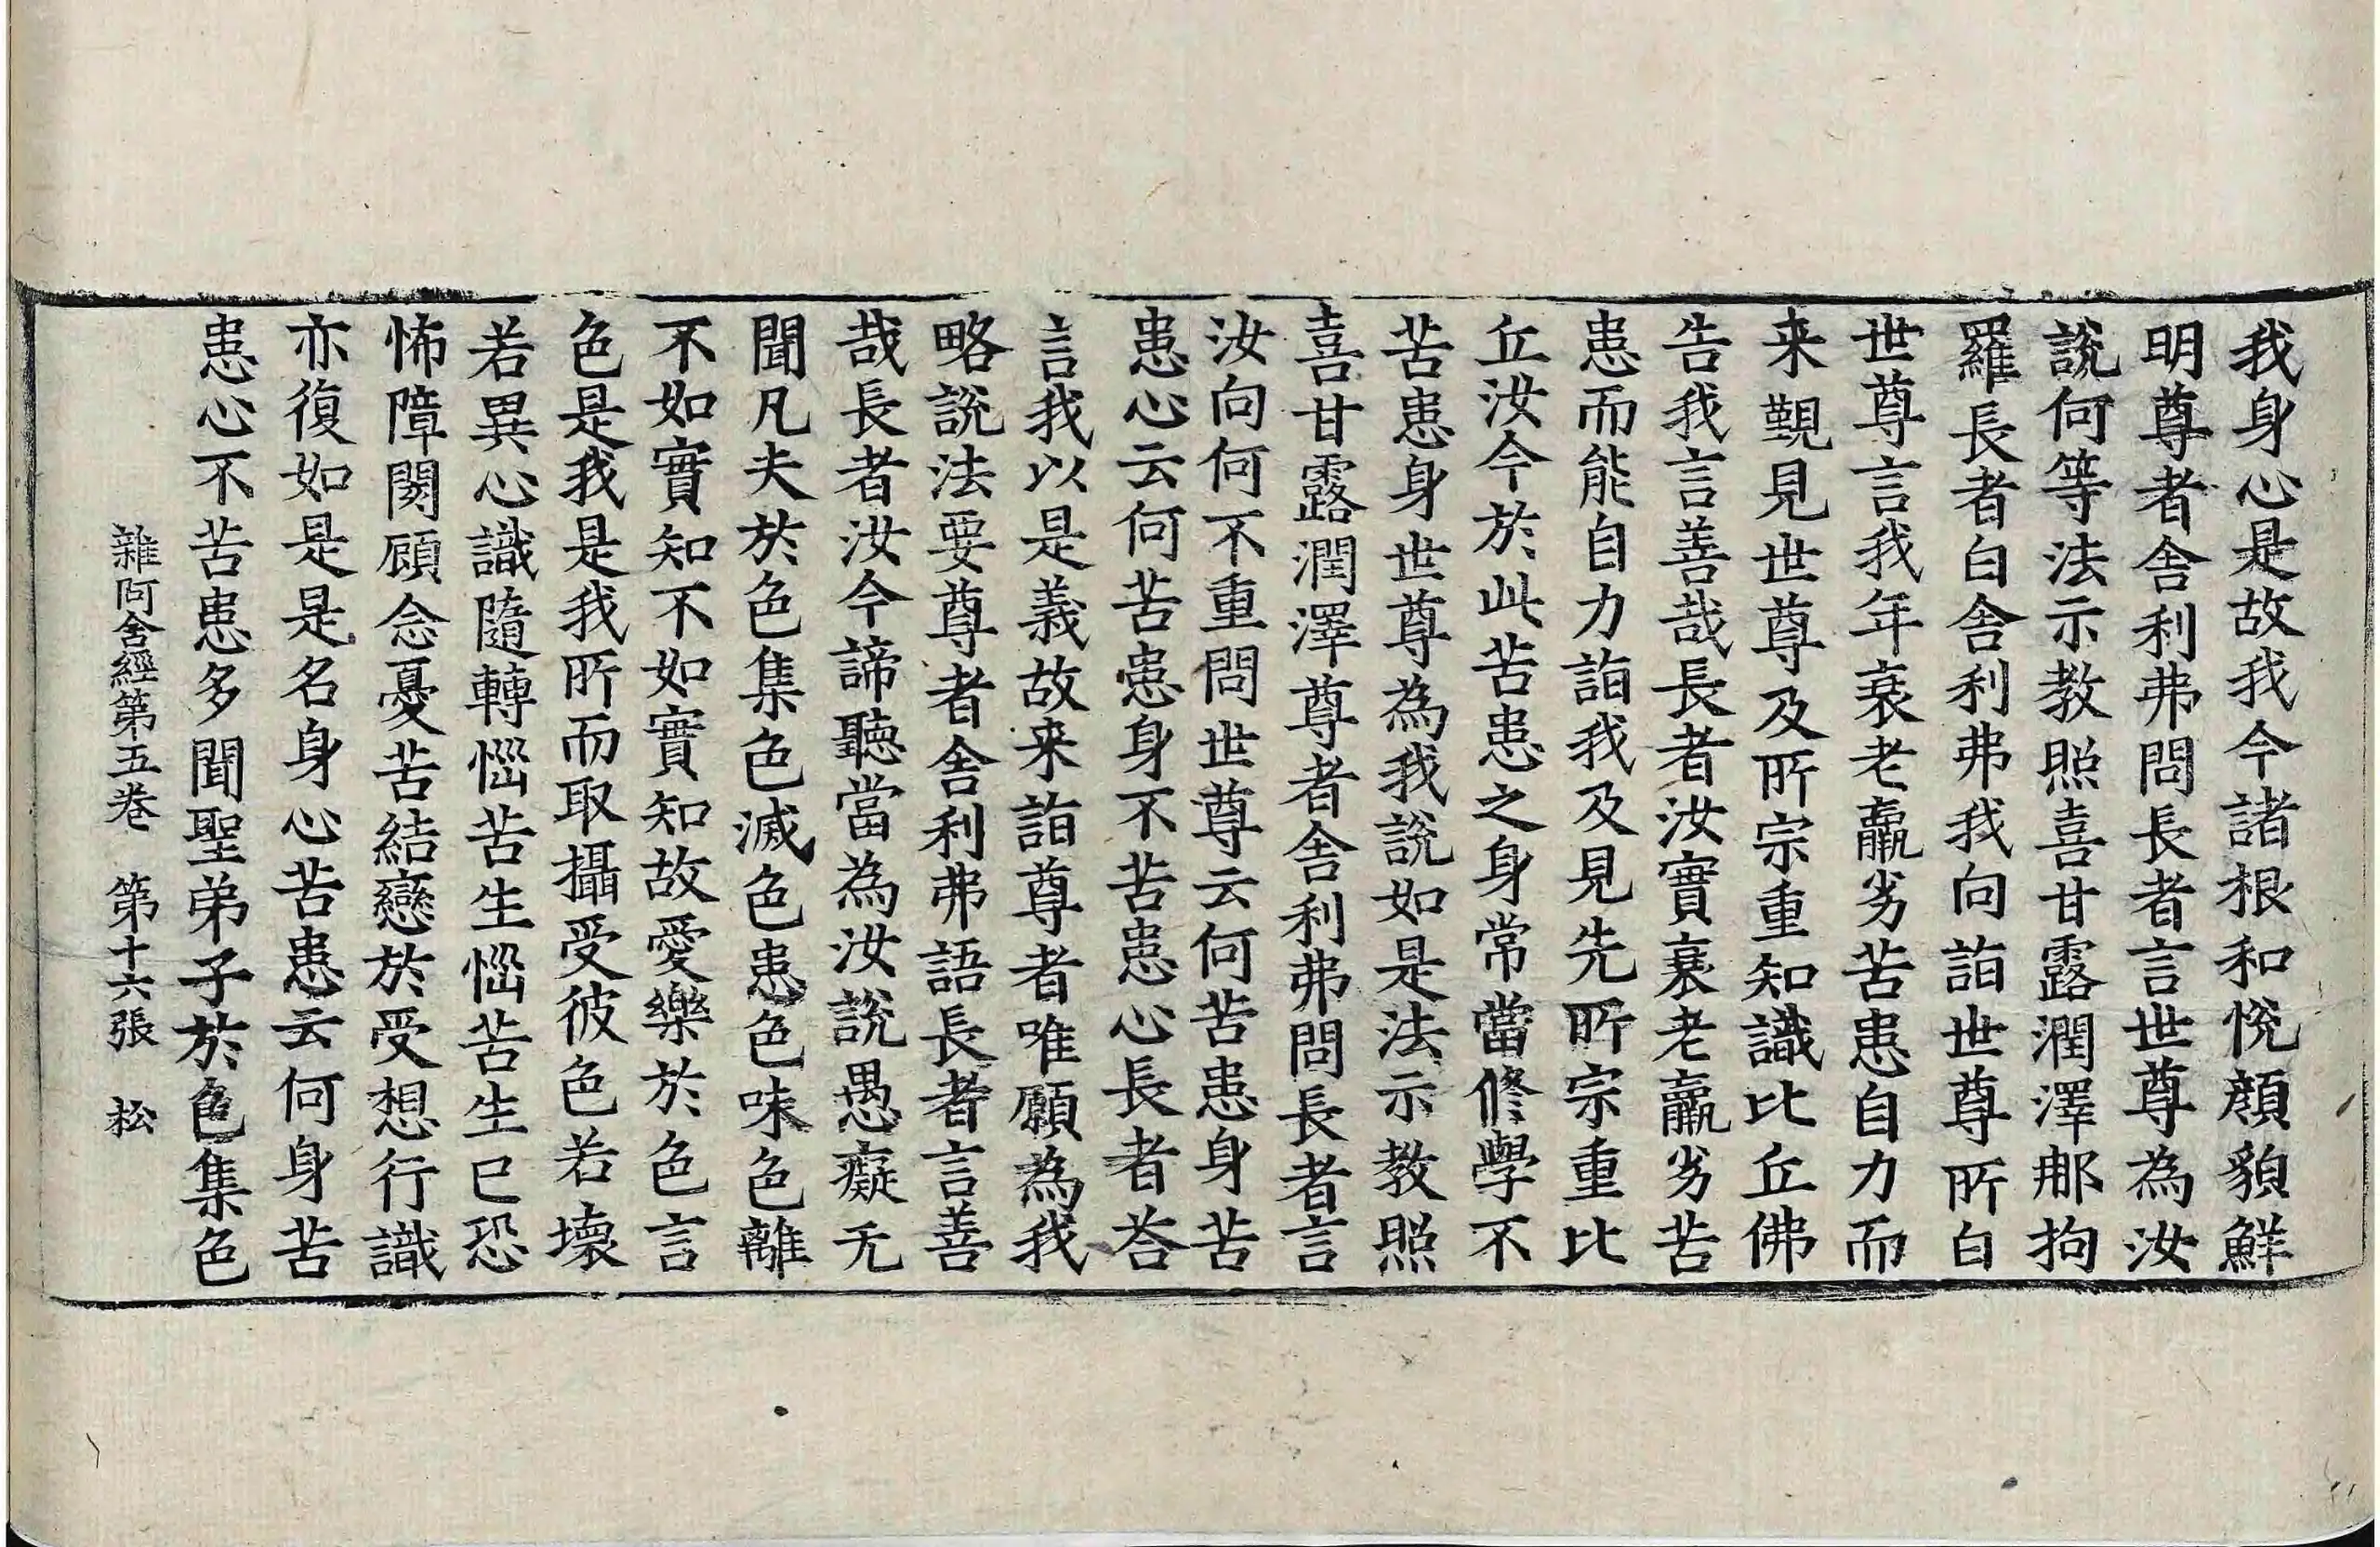 我身心是故我今諸根和悅顔貌鮮
明尊者舍利弗問長者言世尊為汝
說何等法示教照喜甘露潤澤那拘
羅長者白舍利弗我向詣世尊所白
世尊言我年衰老羸劣苦患自力而
来覲見世尊及所宗重知識比丘佛
告我言善哉長者汝實衰老羸劣苦
患而能自力詣我及見先所宗重比
丘汝今於此苦患之身常當修學不
苦患身世尊為我說如是法示教照
喜甘露潤澤尊者舍利弗問長者言
汝向何不重問世尊云何苦患身苦
患心云何苦患身不苦患心長者荅
言我以是義故来詣尊者唯願為我
略說法要尊者舍利弗語長者言善
哉長者汝今諦聽當為汝說愚癡无
聞凡夫於色集色滅色患色味色離
不如實知不如實知故愛樂於色言
色是我是我所而取攝受彼色若壞
若異心識隨轉惱苦生惱苦生已恐
怖障閡顧念憂苦結戀於受想行識
亦復如是是名身心苦患云何身苦
患心不苦患多聞聖弟子於色集色
雜阿含經第五卷 第十六張 松